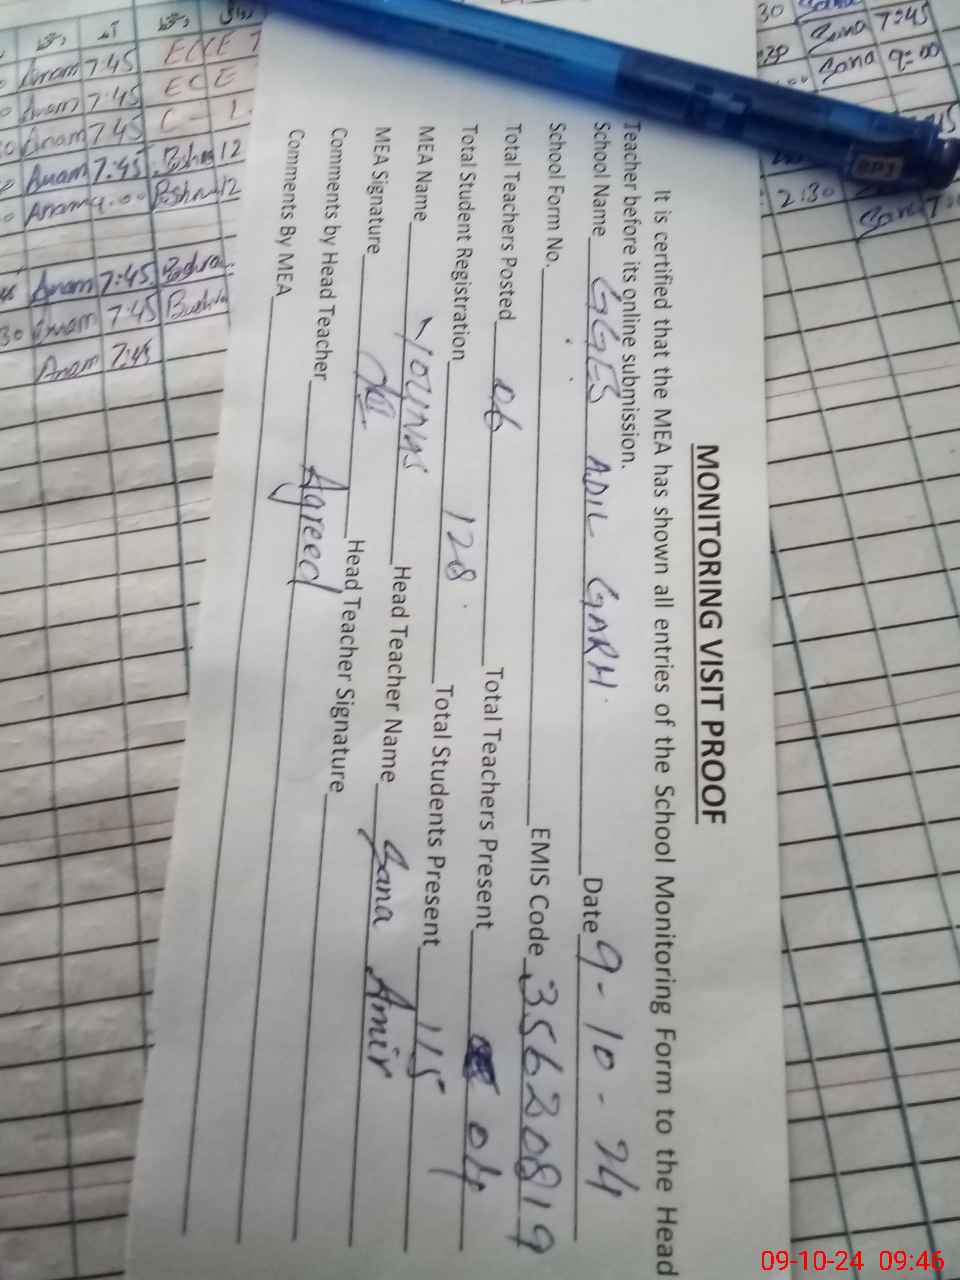 MONITORING VISIT PROOF
It is certified that the MEA has shown all entries of the School Monitoring Form to the Head
Teacher before its online submission.
School Name GGES ADIL GARH. Date 9-10-24
School Form No. EMIS Code 35620819
Total Teachers Posted 06 Total Teachers Present 04
Total Student Registration 128 Total Students Present 115
MEA Name YOUNAS Head Teacher Name Sana Amir
MEA Signature Head Teacher Signature
Comments by Head Teacher Agreed
Comments By MEA
Anam 7:45 ECE
Anam 7:45 ECE
Anam 7:45
Anam 7:45 12
Anam 12
Anam 7:45 Bushra
Anam 7:45 Bushra
Anam 7:45
30 Sana 7:45
Sana 9:00
2:30
09-10-24 09:46